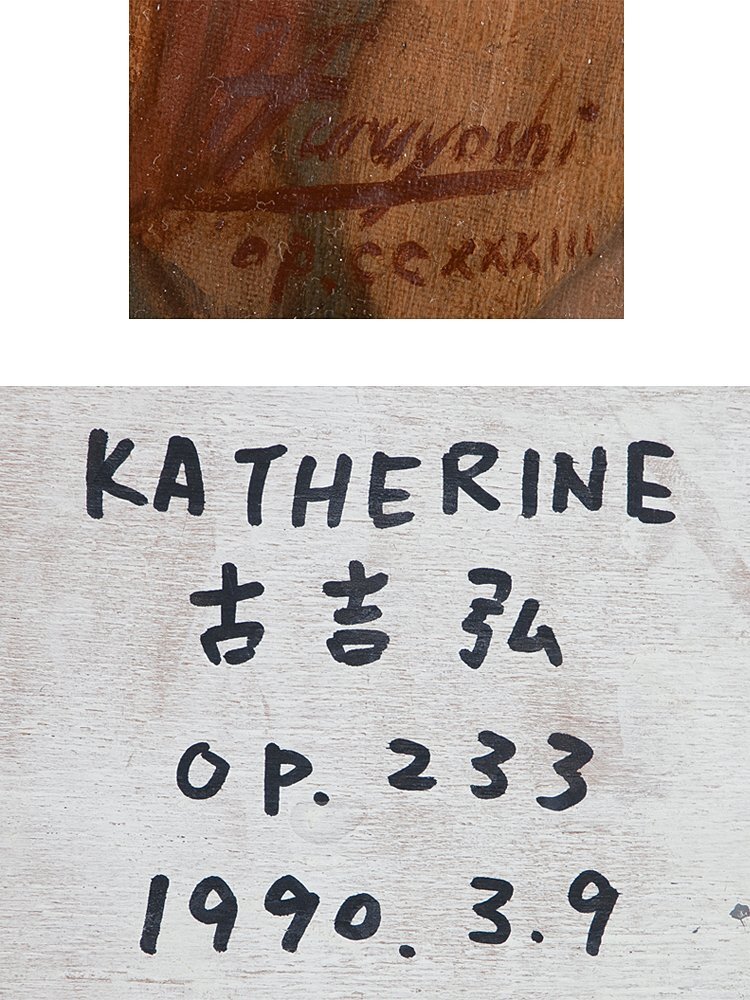 Furuyoshi
op. CCXXXIII
KATHERINE
古吉弘
OP. 233
1990. 3.9